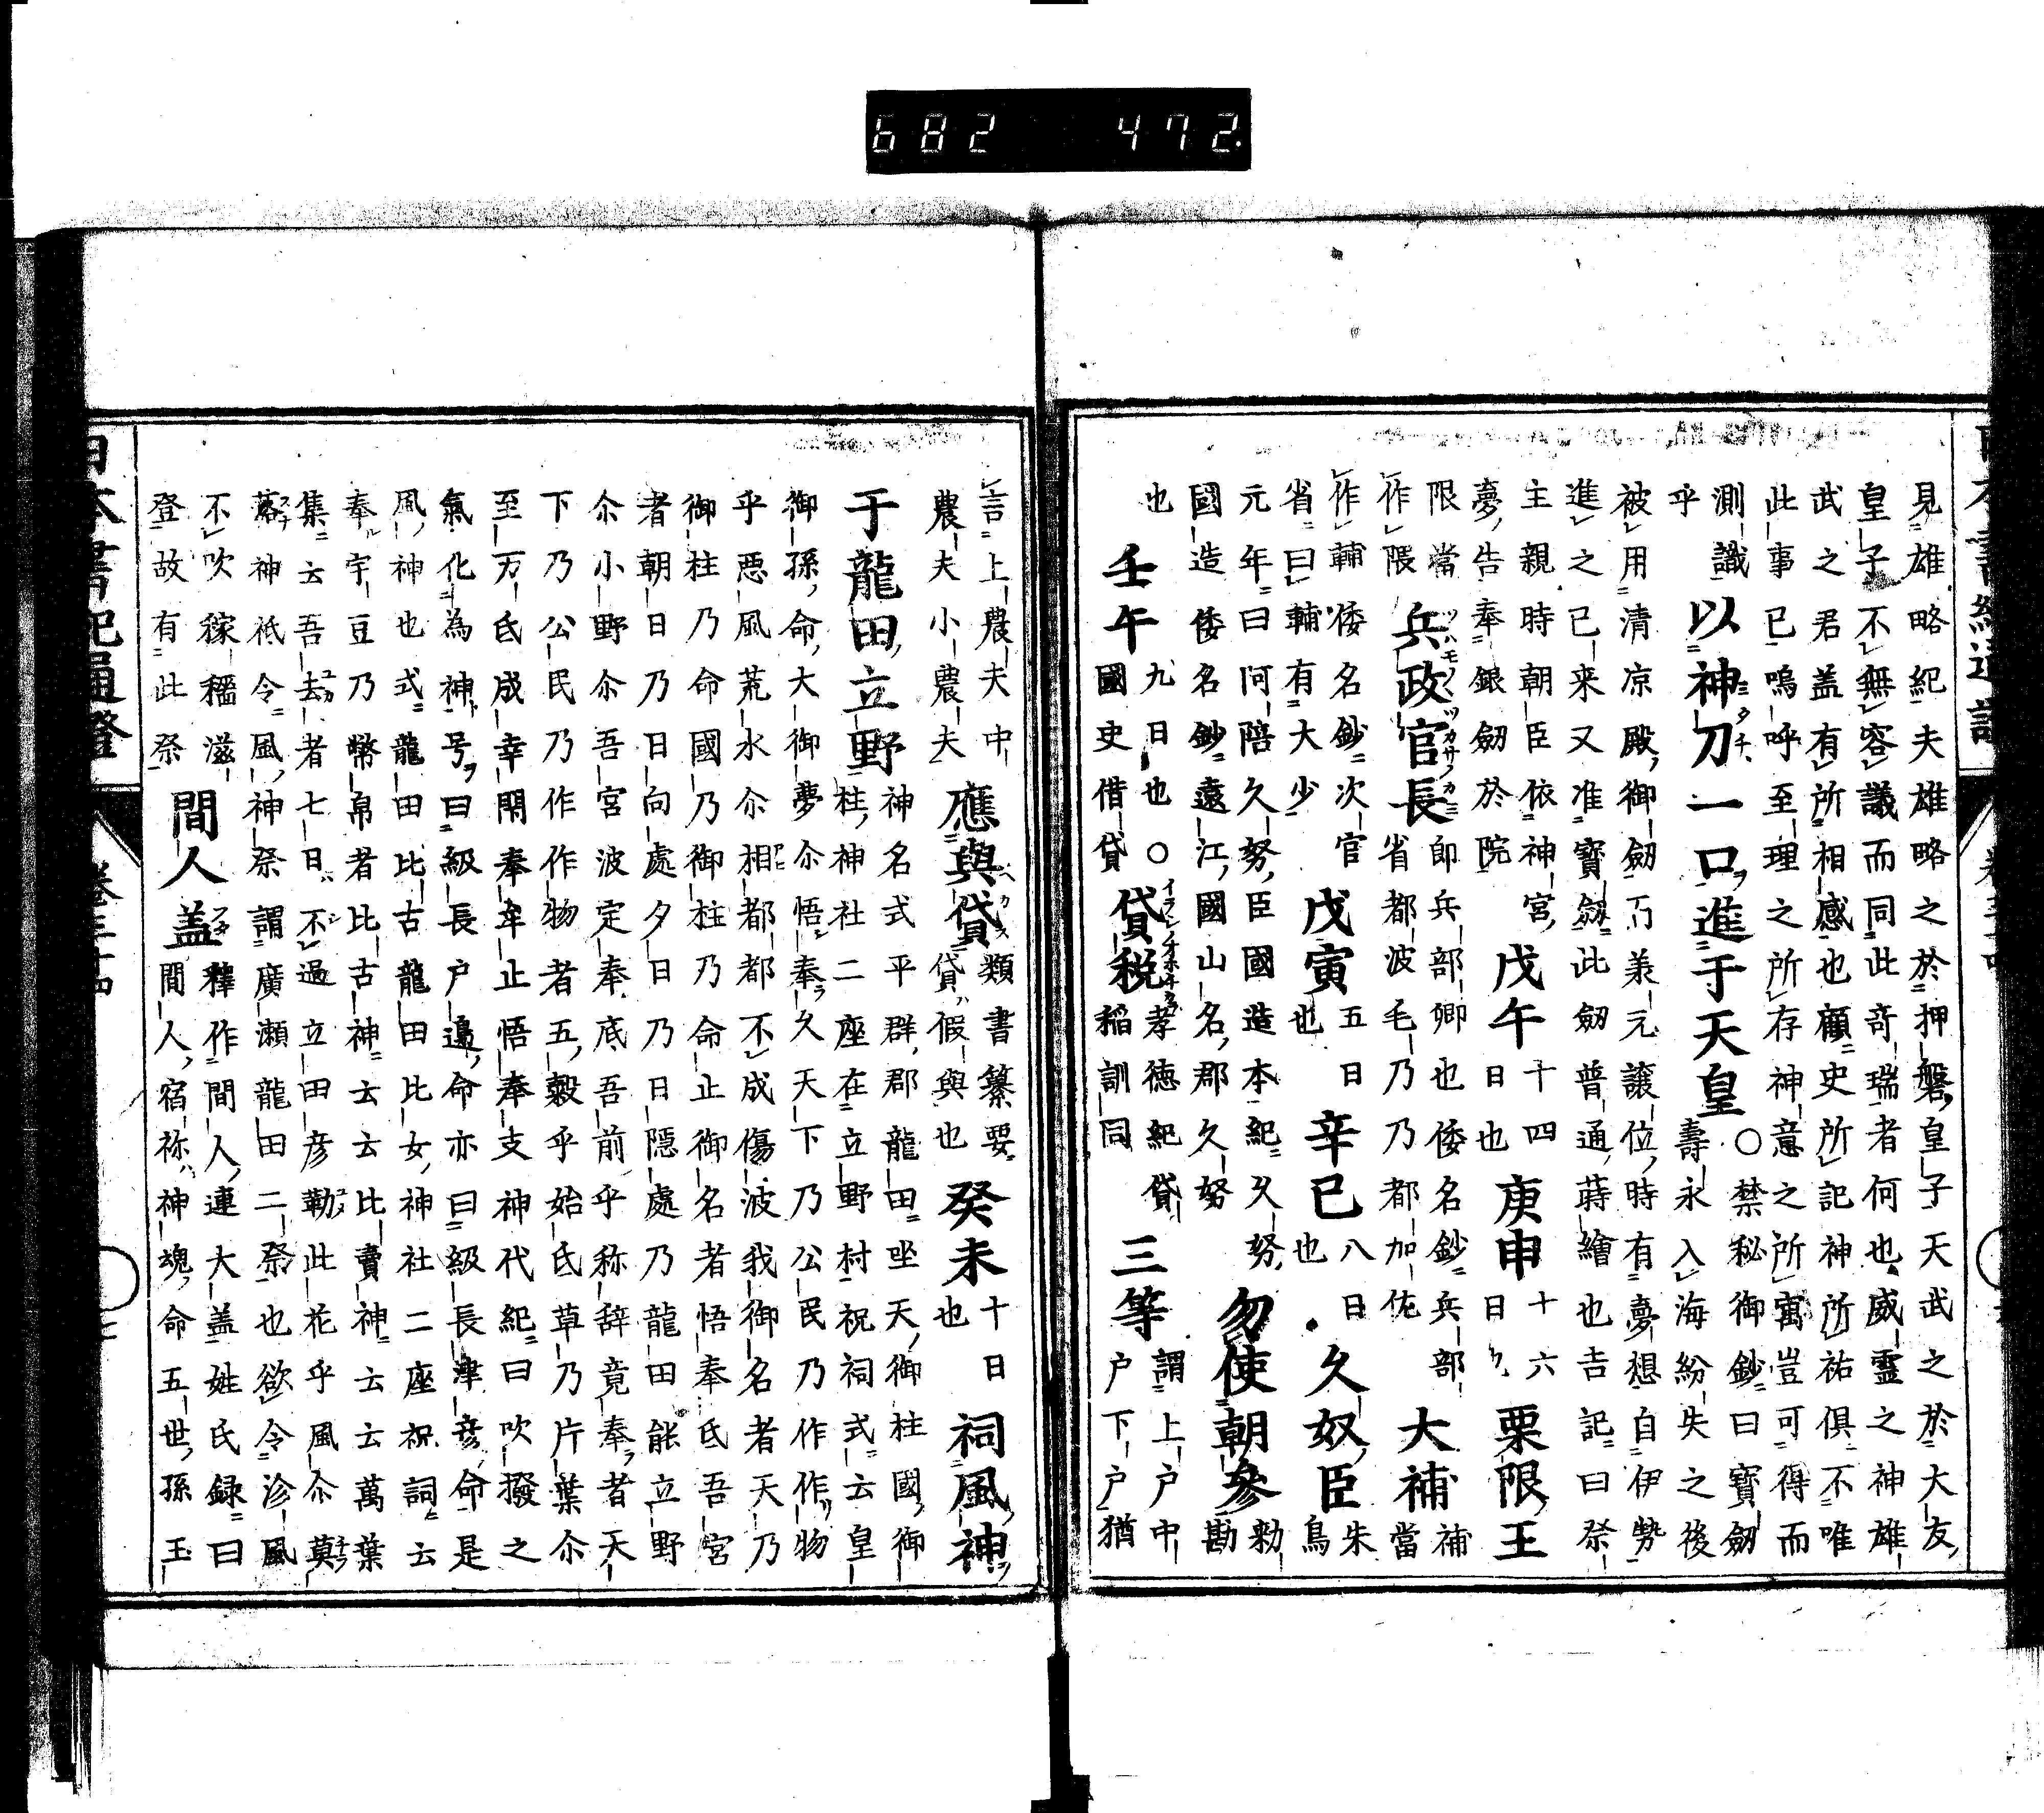 682 472.
見雄略紀夫雄略之於押磐皇子天武之於大友
皇子不無容議而同此奇瑞者何也威靈之神雄
武之君盖有所相感也顧史所記神所祐俱不唯
此事已嗚呼至理之所存神意之所寓豈可得而
測識 以神刀一口進于天皇 ○禁秘御鈔曰寶劔
乎 壽永入海紛失之後
被用清凉殿御劔 義元讓位時有夢想自伊勢
進之已来又准寶劔此劔普通蒔繪也吉記曰祭
主親時朝臣依神宮 戊午 十四 庚申 十六 栗限王
夢告奉銀劔於院 日也 日
限當 兵政官長 即兵部卿也倭名鈔兵部 大補 補
作隈 ツハモノヽツカサノカミ 省都波毛乃乃都加佐 當
作輔倭名鈔次官 戊寅 五日 辛巳 八日 久奴臣 朱
省曰輔有大少 也 也 鳥
元年曰阿陪久努臣國造本紀久努 勿使朝參 勅
國造倭名鈔遠江國山名郡久努 勘
也 壬午 九日也○ 貸税 孝徳紀貸 三等 謂上户中
國史借貸 稲訓同 户下户猶
言上農夫中 應與貸 類書纂要 癸未 十日 祠風神
農夫小農夫 貸假與也 也
于龍田立野 神名式平群郡龍田坐天御柱國御
柱神社二座在立野村祝祠式云皇
御孫命大御夢尒悟奉久天下乃公民乃作作物
乎悪風荒水尒相都都不成傷波我御名者天乃
御柱乃命國乃御柱乃命止御名者悟奉氐吾宮
者朝日乃日向處夕日乃日隱處乃龍田能立野
尒小野尒吾宮波定奉底吾前乎称辞竟奉者天
下乃公民乃作作物者五穀乎始氐草乃片葉尒
至万氐成幸閇奉牟止悟奉支神代紀曰吹撥之
氣化為神号曰級長户邉命亦曰級長津彦命是
風神也式龍田比古龍田比女神社二座祝詞云
奉宇豆乃幣帛者比古神云云比賣神云云萬葉
集云吾去者七日不過立田彦勤此花乎風尒莫
落神祇令風神祭謂廣瀬龍田二祭也欲令沴風
不吹稼穡滋 間人盖 釋作間人連大盖姓氏録曰
登故有此祭 間人宿祢神魂命五世孫玉